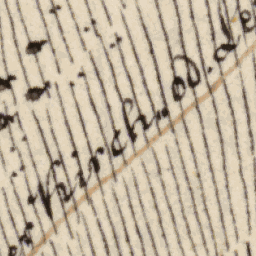 er Kirch. od. de